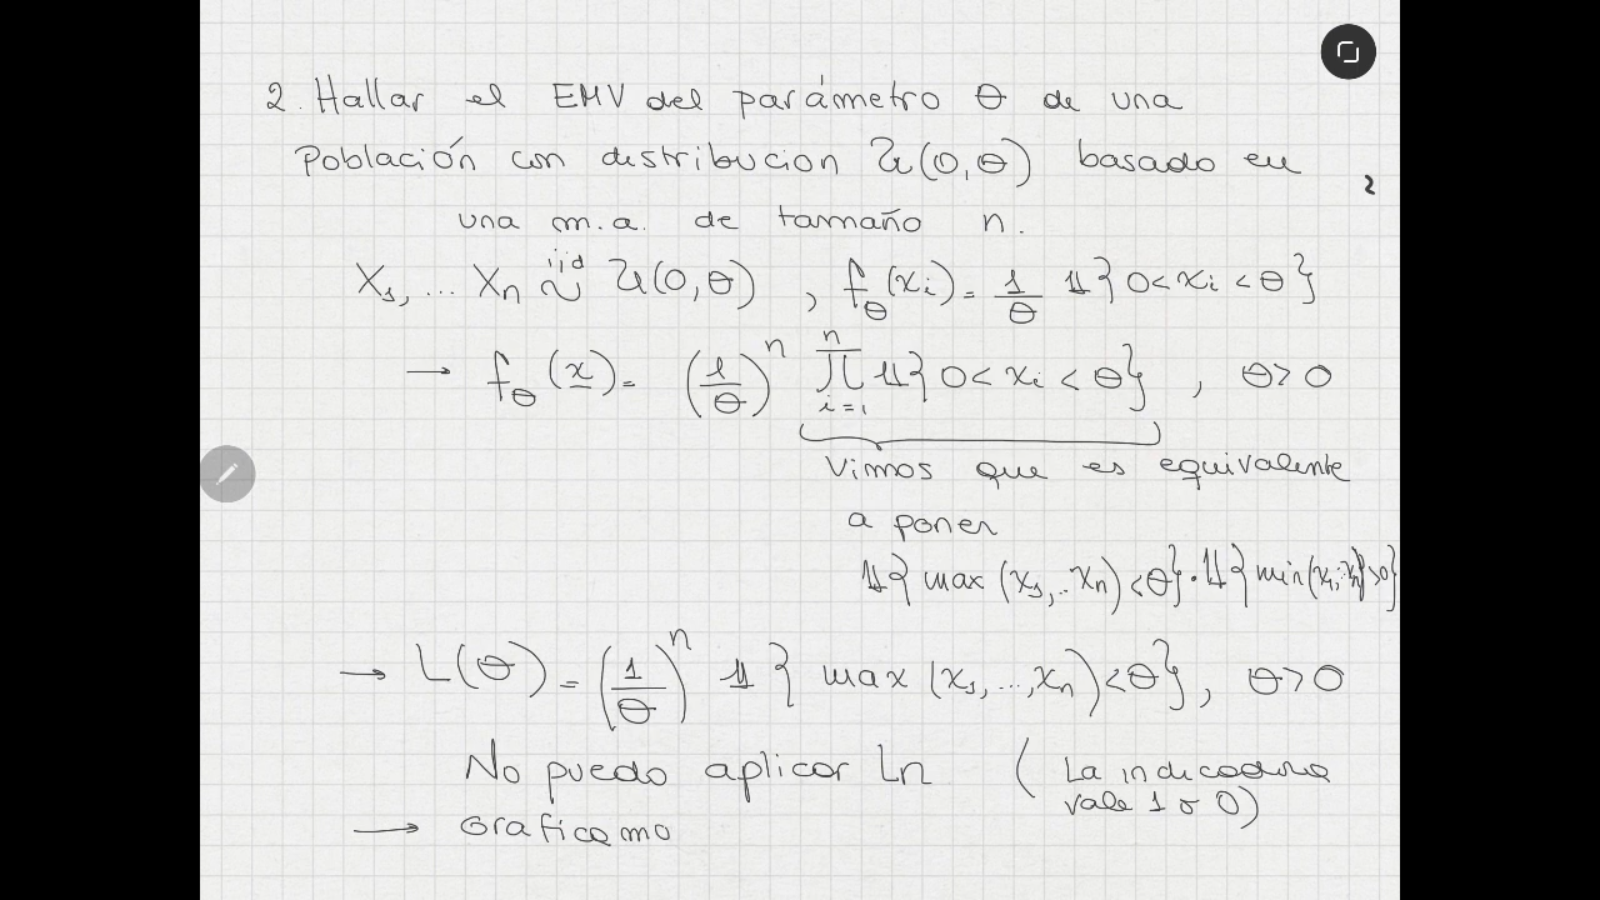 2. Hallar el EMV del parámetro θ de una
Población con distribucion U(0,θ) basado en
una m.a. de tamaño n.
2
X₁,... Xn ~iid U(0,θ) , f_θ(xi) = 1/θ 𝟙{0<xi<θ}
→ f_θ(x) = (1/θ)^n ∏_{i=1}^n 𝟙{0<xi<θ} , θ>0
Vimos que es equivalente
a poner
𝟙{max(x₁,..xn)<θ}·𝟙{min(x₁,..xn)>0}
→ L(θ) = (1/θ)^n 𝟙{max(x₁,...,xn)<θ}, θ>0
No puedo aplicar Ln (La indicadora
vale 1 o 0)
→ Graficamo